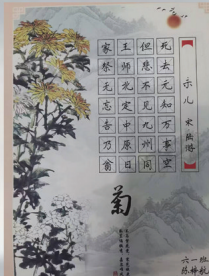 示儿 宋 陆游
死去元知万事空
但悲不见九州同
王师北定中原日
家祭无忘告乃翁
菊
六一班